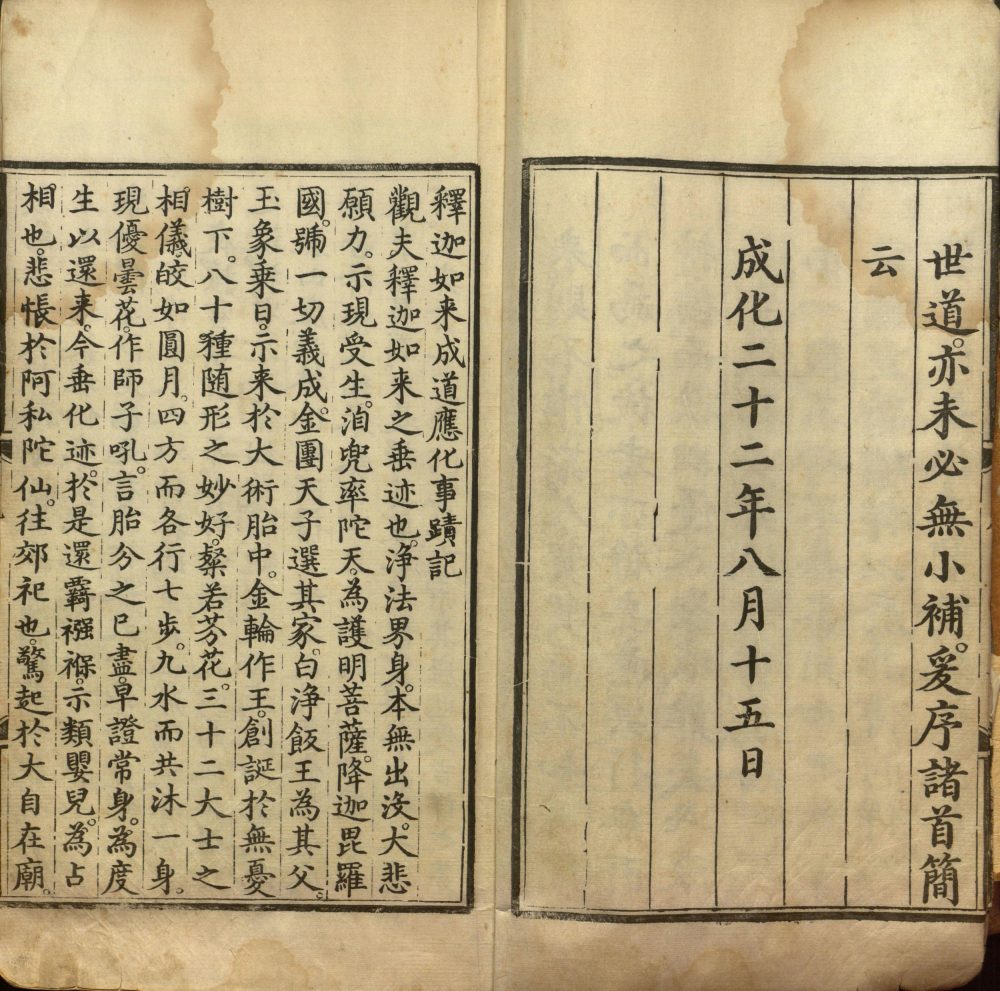 世道。亦未必無小補。爰序諸首簡
云
成化二十二年八月十五日
釋迦如来成道應化事蹟記
觀夫釋迦如来之垂迹也。浄法界身。本無出没。大悲
願力。示現受生。洎兜率陀天。為護明菩薩。降迦毘羅
國。號一切義成。金團天子選其家。白浄飯王為其父。
玉象乗日。示来於大術胎中。金輪作王。創誕於無憂
樹下。八十種随形之妙好。粲若芬花。三十二大士之
相儀。皎如圓月。四方而各行七步。九水而共沐一身。
現優曇花。作師子吼。言胎分之已盡。早證常身。為度
生以還来。今垂化迹。於是還覊襁褓。示類嬰兒。為占
相也。悲悵於阿私陀仙。往郊祀也。驚起於大自在廟。